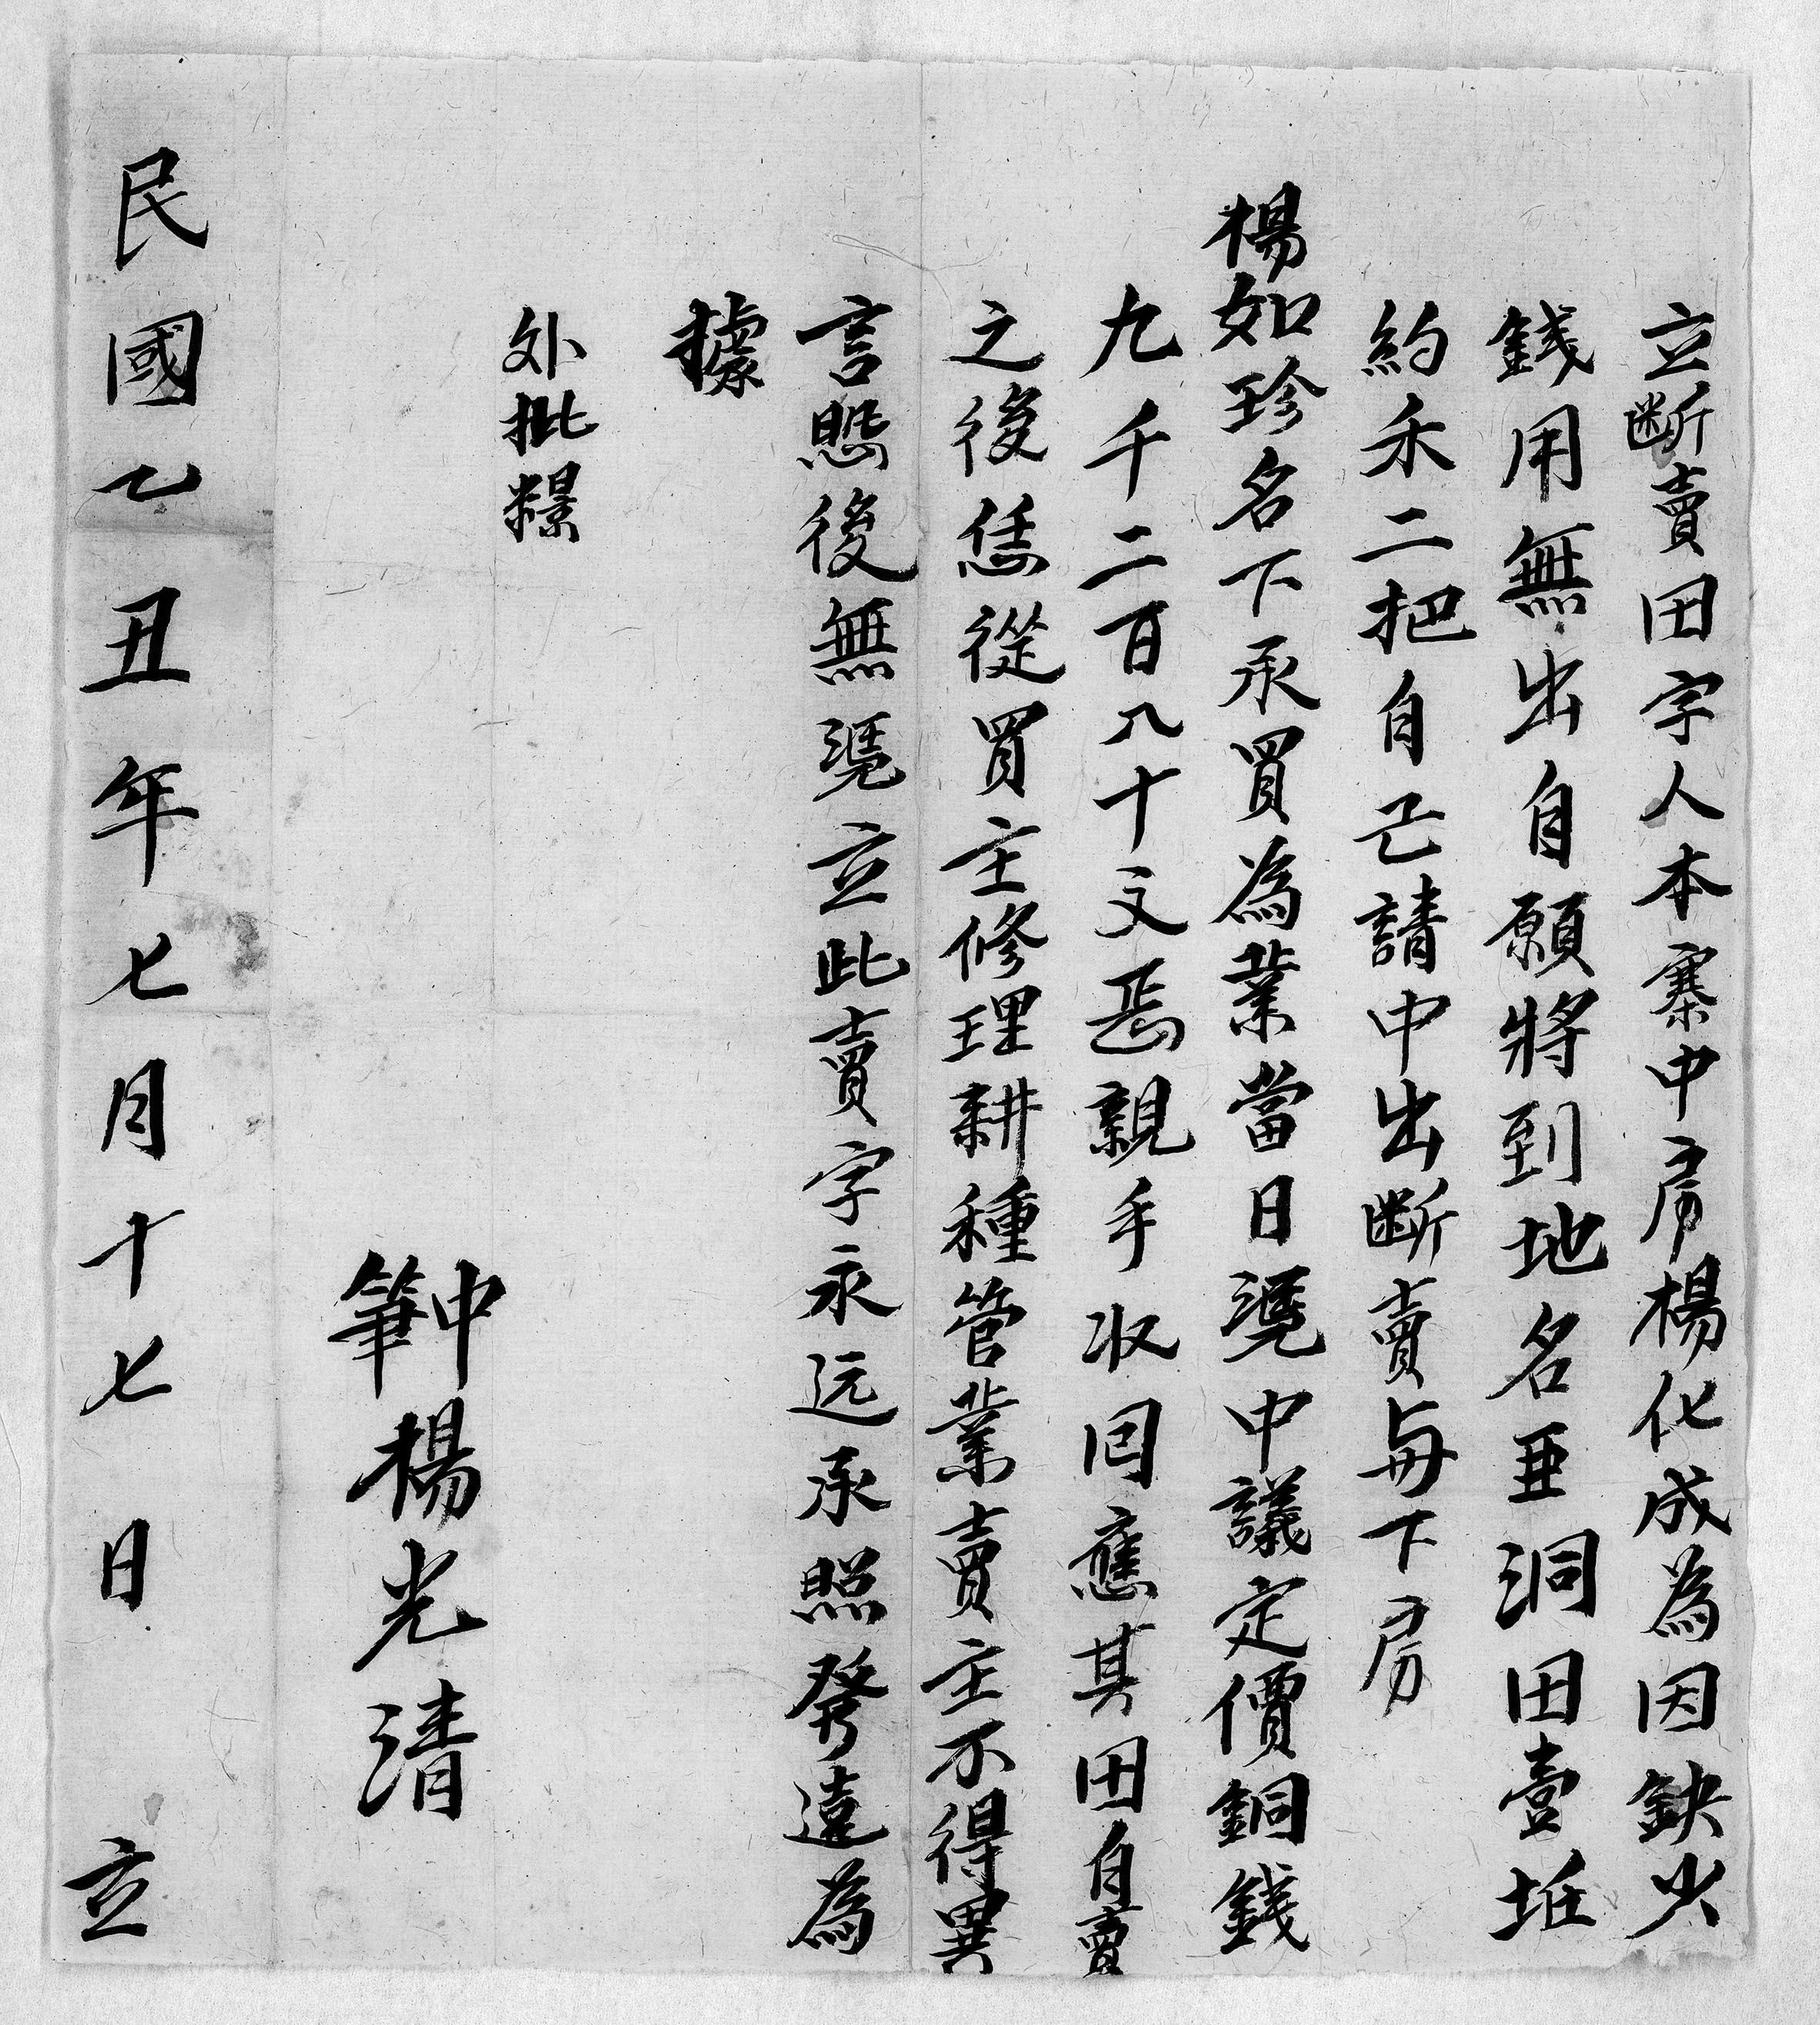 立斷賣田字人本寨中房楊化成為因缺少
錢用無出自願將到地名亜洞田壹坵
約禾二把自己請中出斷賣與下房
楊如珍名下承買為業當日凴中議定價銅錢
九千二百八十文焉親手收囘應其田自賣
之後恁從買主修理耕種管業賣主不得異
言愳後無凴立此賣字永远承照發達為
據
外批糧
中
筆楊光清
民國乙丑年七月十七日立